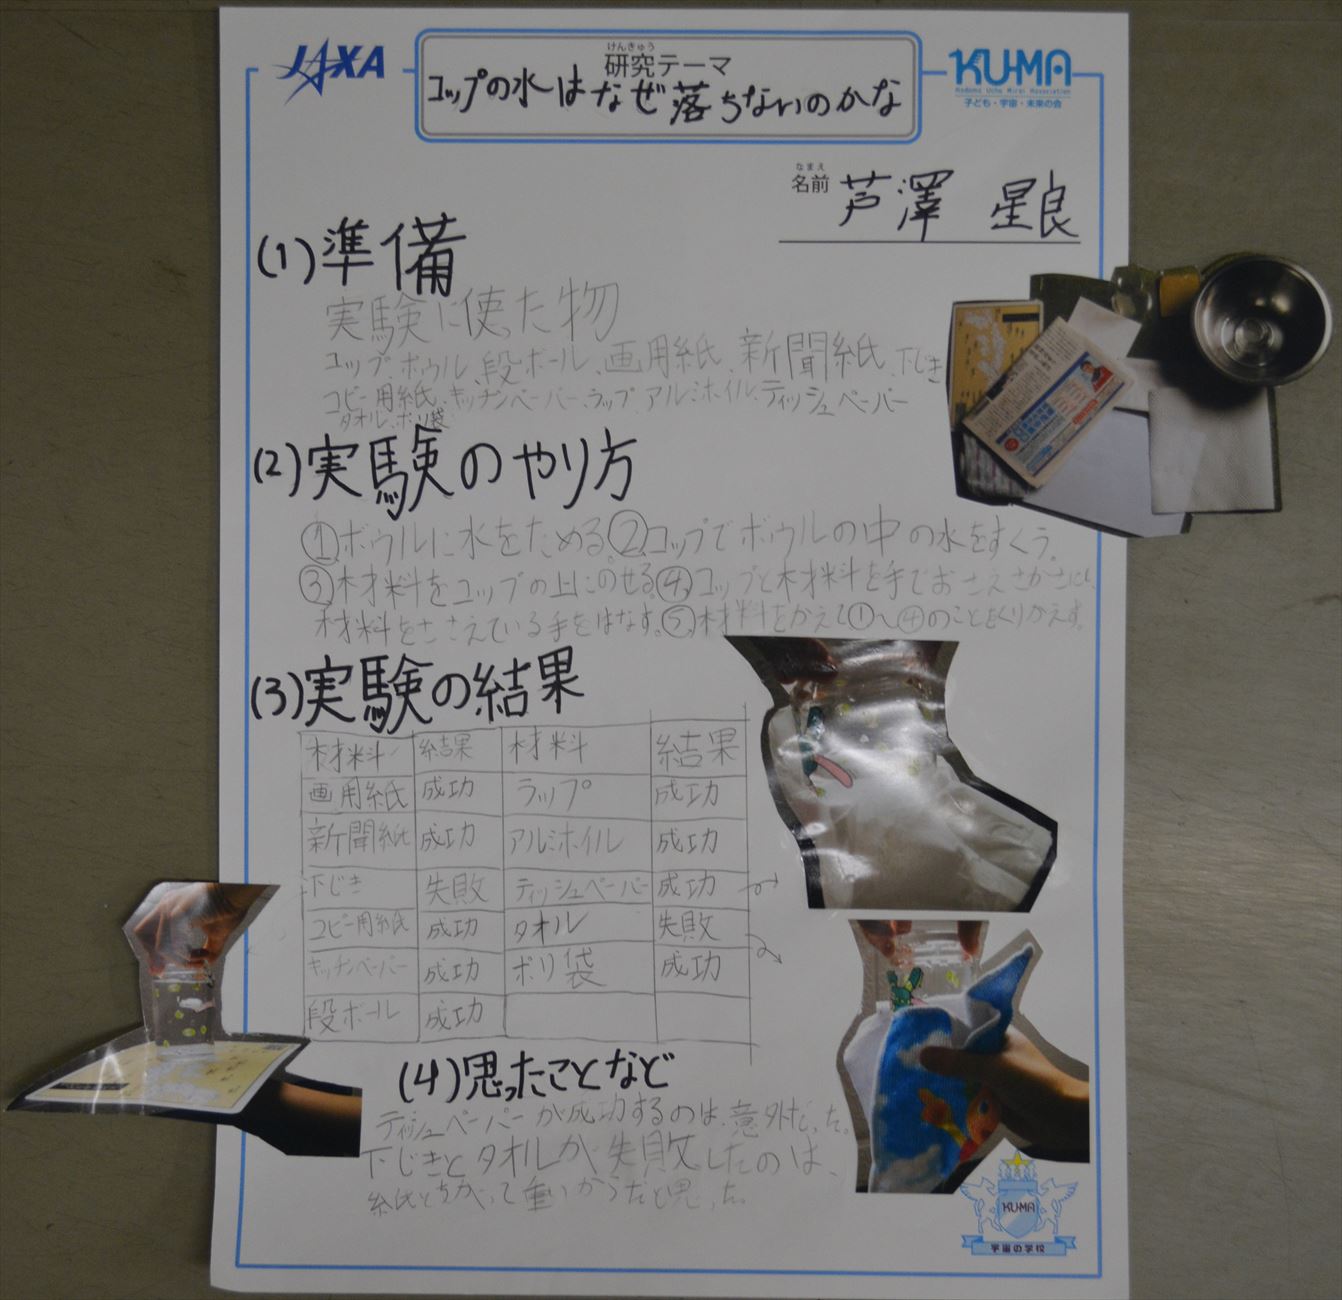 JAXA
けんきゅう
研究テーマ
コップの水はなぜ落ちないのかな
KU-MA
Kodomo Uchu Mirai Association
子ども・宇宙・未来の会
なまえ
名前 芦澤 星良
(1)準備
実験に使った物
コップ、ボウル、段ボール、画用紙、新聞紙、下じき
コピー用紙、キッチンペーパー、ラップ、アルミホイル、ティッシュペーパー
タオル、ポリ袋
(2)実験のやり方
①ボウルに水をためる。②コップでボウルの中の水をすくう。
③材料をコップの上にのせる。④コップと材料を手でおさえさかさにし、
材料をささえている手をはなす。⑤材料をかえて①〜④のことをくりかえす。
(3)実験の結果
材料 結果 材料 結果
画用紙 成功 ラップ 成功
新聞紙 成功 アルミホイル 成功
下じき 失敗 ティッシュペーパー 成功
コピー用紙 成功 タオル 失敗
キッチンペーパー 成功 ポリ袋 成功
段ボール 成功
(4)思ったことなど
ティッシュペーパーが成功するのは、意外だった。
下じきとタオルが失敗したのは、
紙とちがって重いからだと思った。
KU-MA
宇宙の学校